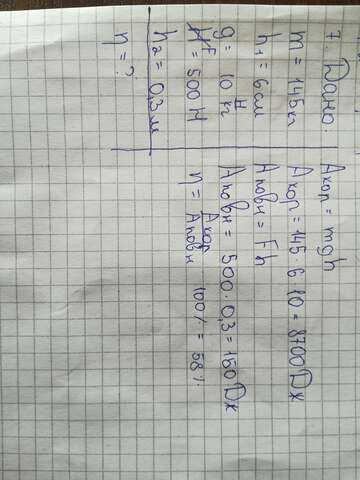 7. Дано:
m = 145 кг
h₁ = 6 см
g = 10 Н/кг
F = 500 Н
h₂ = 0,3 м
η = ?
Aкор = mgh
Aкор = 145 · 6 10 = 8700 Dж
Aповн = Fh
Aповн = 500 · 0,3 = 150 Dж
η = Aкор/Aповн 100% = 58%